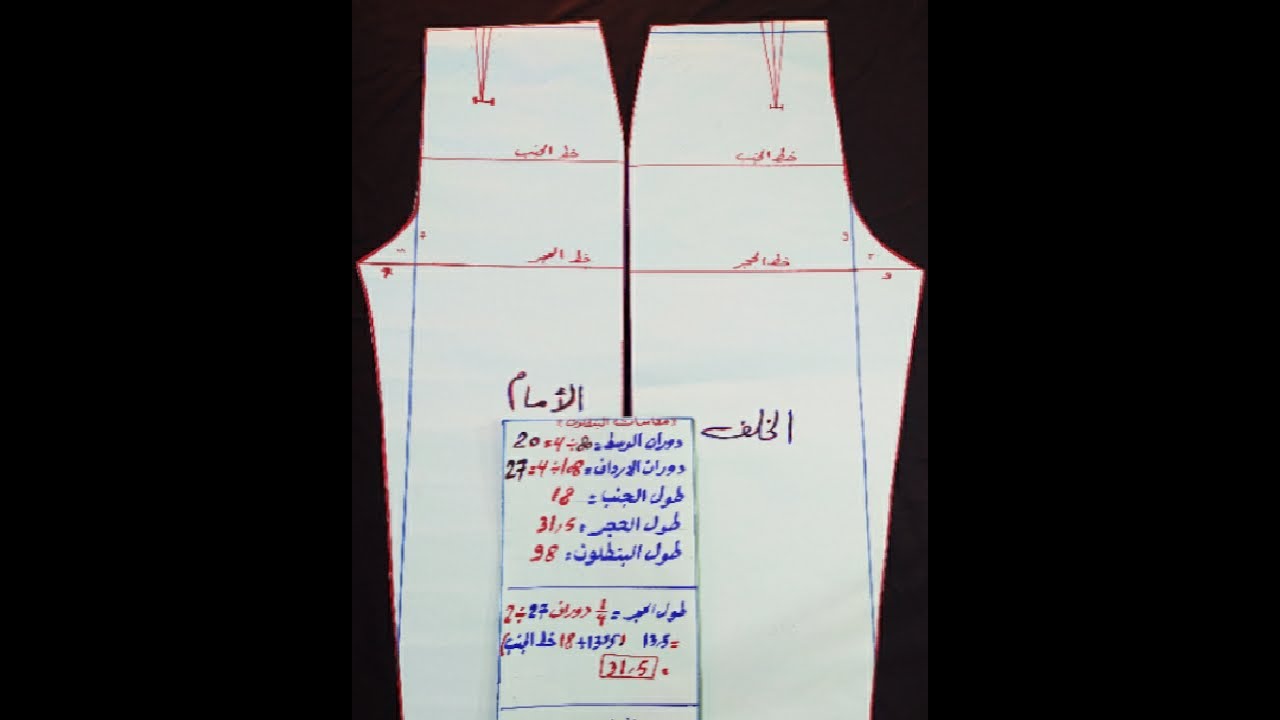 خط الجنب
خط الجنب
خط الحجر
خط الحجر
الأمام
الخلف
(مقاسات البنطلون)
دوران الوسط = 80 ÷ 4 = 20
دوران الارداف = 108 ÷ 4 = 27
طول الجنب = 18
طول الحجر = 31,5
طول البنطلون = 98
طول الحجر = 1/4 دوران 27 ÷ 2
= 13,5 (13,5 + 18 خط الجنب)
= 31,5